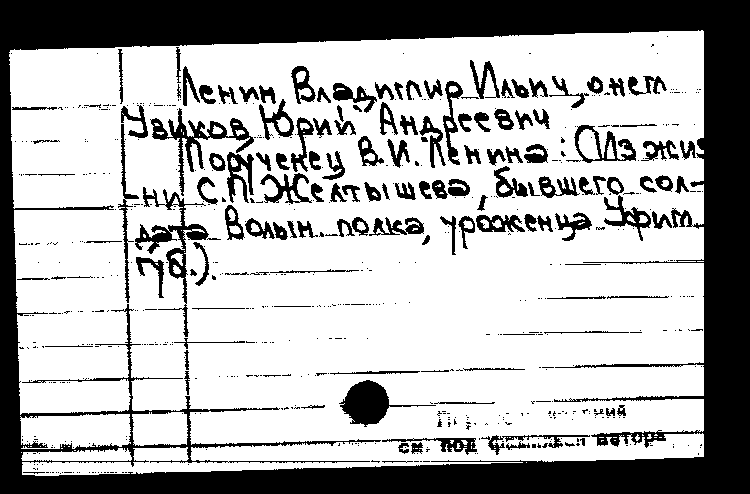 Ленин, Владимир Ильич, о нем
Узиков, Юрий Андреевич
Порученец В.И. Ленина: (Из жиз
-ни С.П. Желтышева, бывшего сол-
дата Волын. полка, уроженца Уфим.
губ.).
см. под фамилией автора